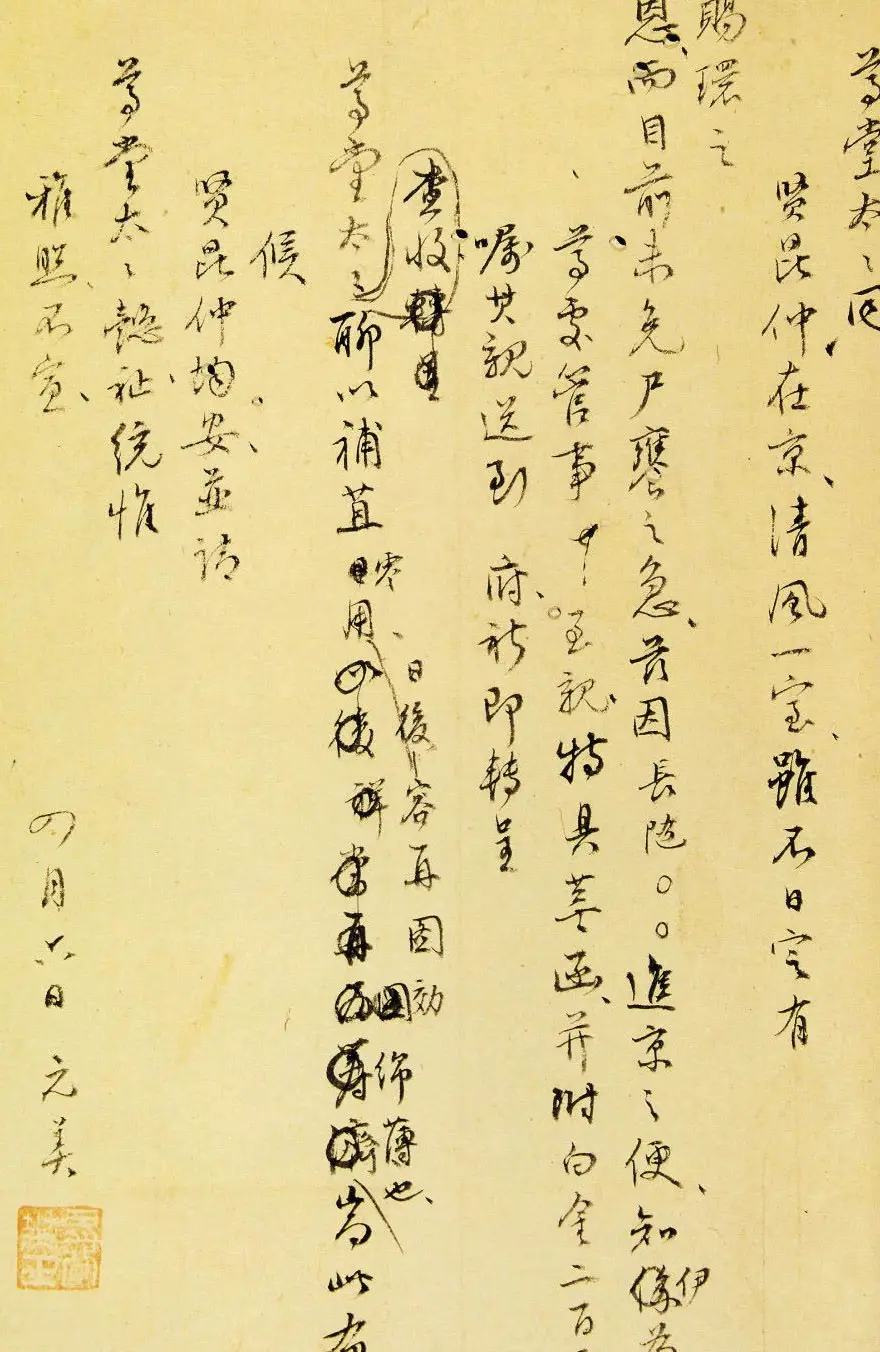 尊堂太〻同
賢昆仲在京、清風一室、雖不日定有
賜環之
恩、而目前未免尸饔之急、茲因長隨○○進京之便、知伊為
尊處管事中至親、特具菶函、并附白金二百
囑其親送到 府、祈即轉呈
查收
尊堂太〻聊以補苴零用、日後容再圖効綿薄也、耑此布
候
賢昆仲均安、並請
尊堂太〻懿祉統惟
雅照不宣、
四月六日 元美